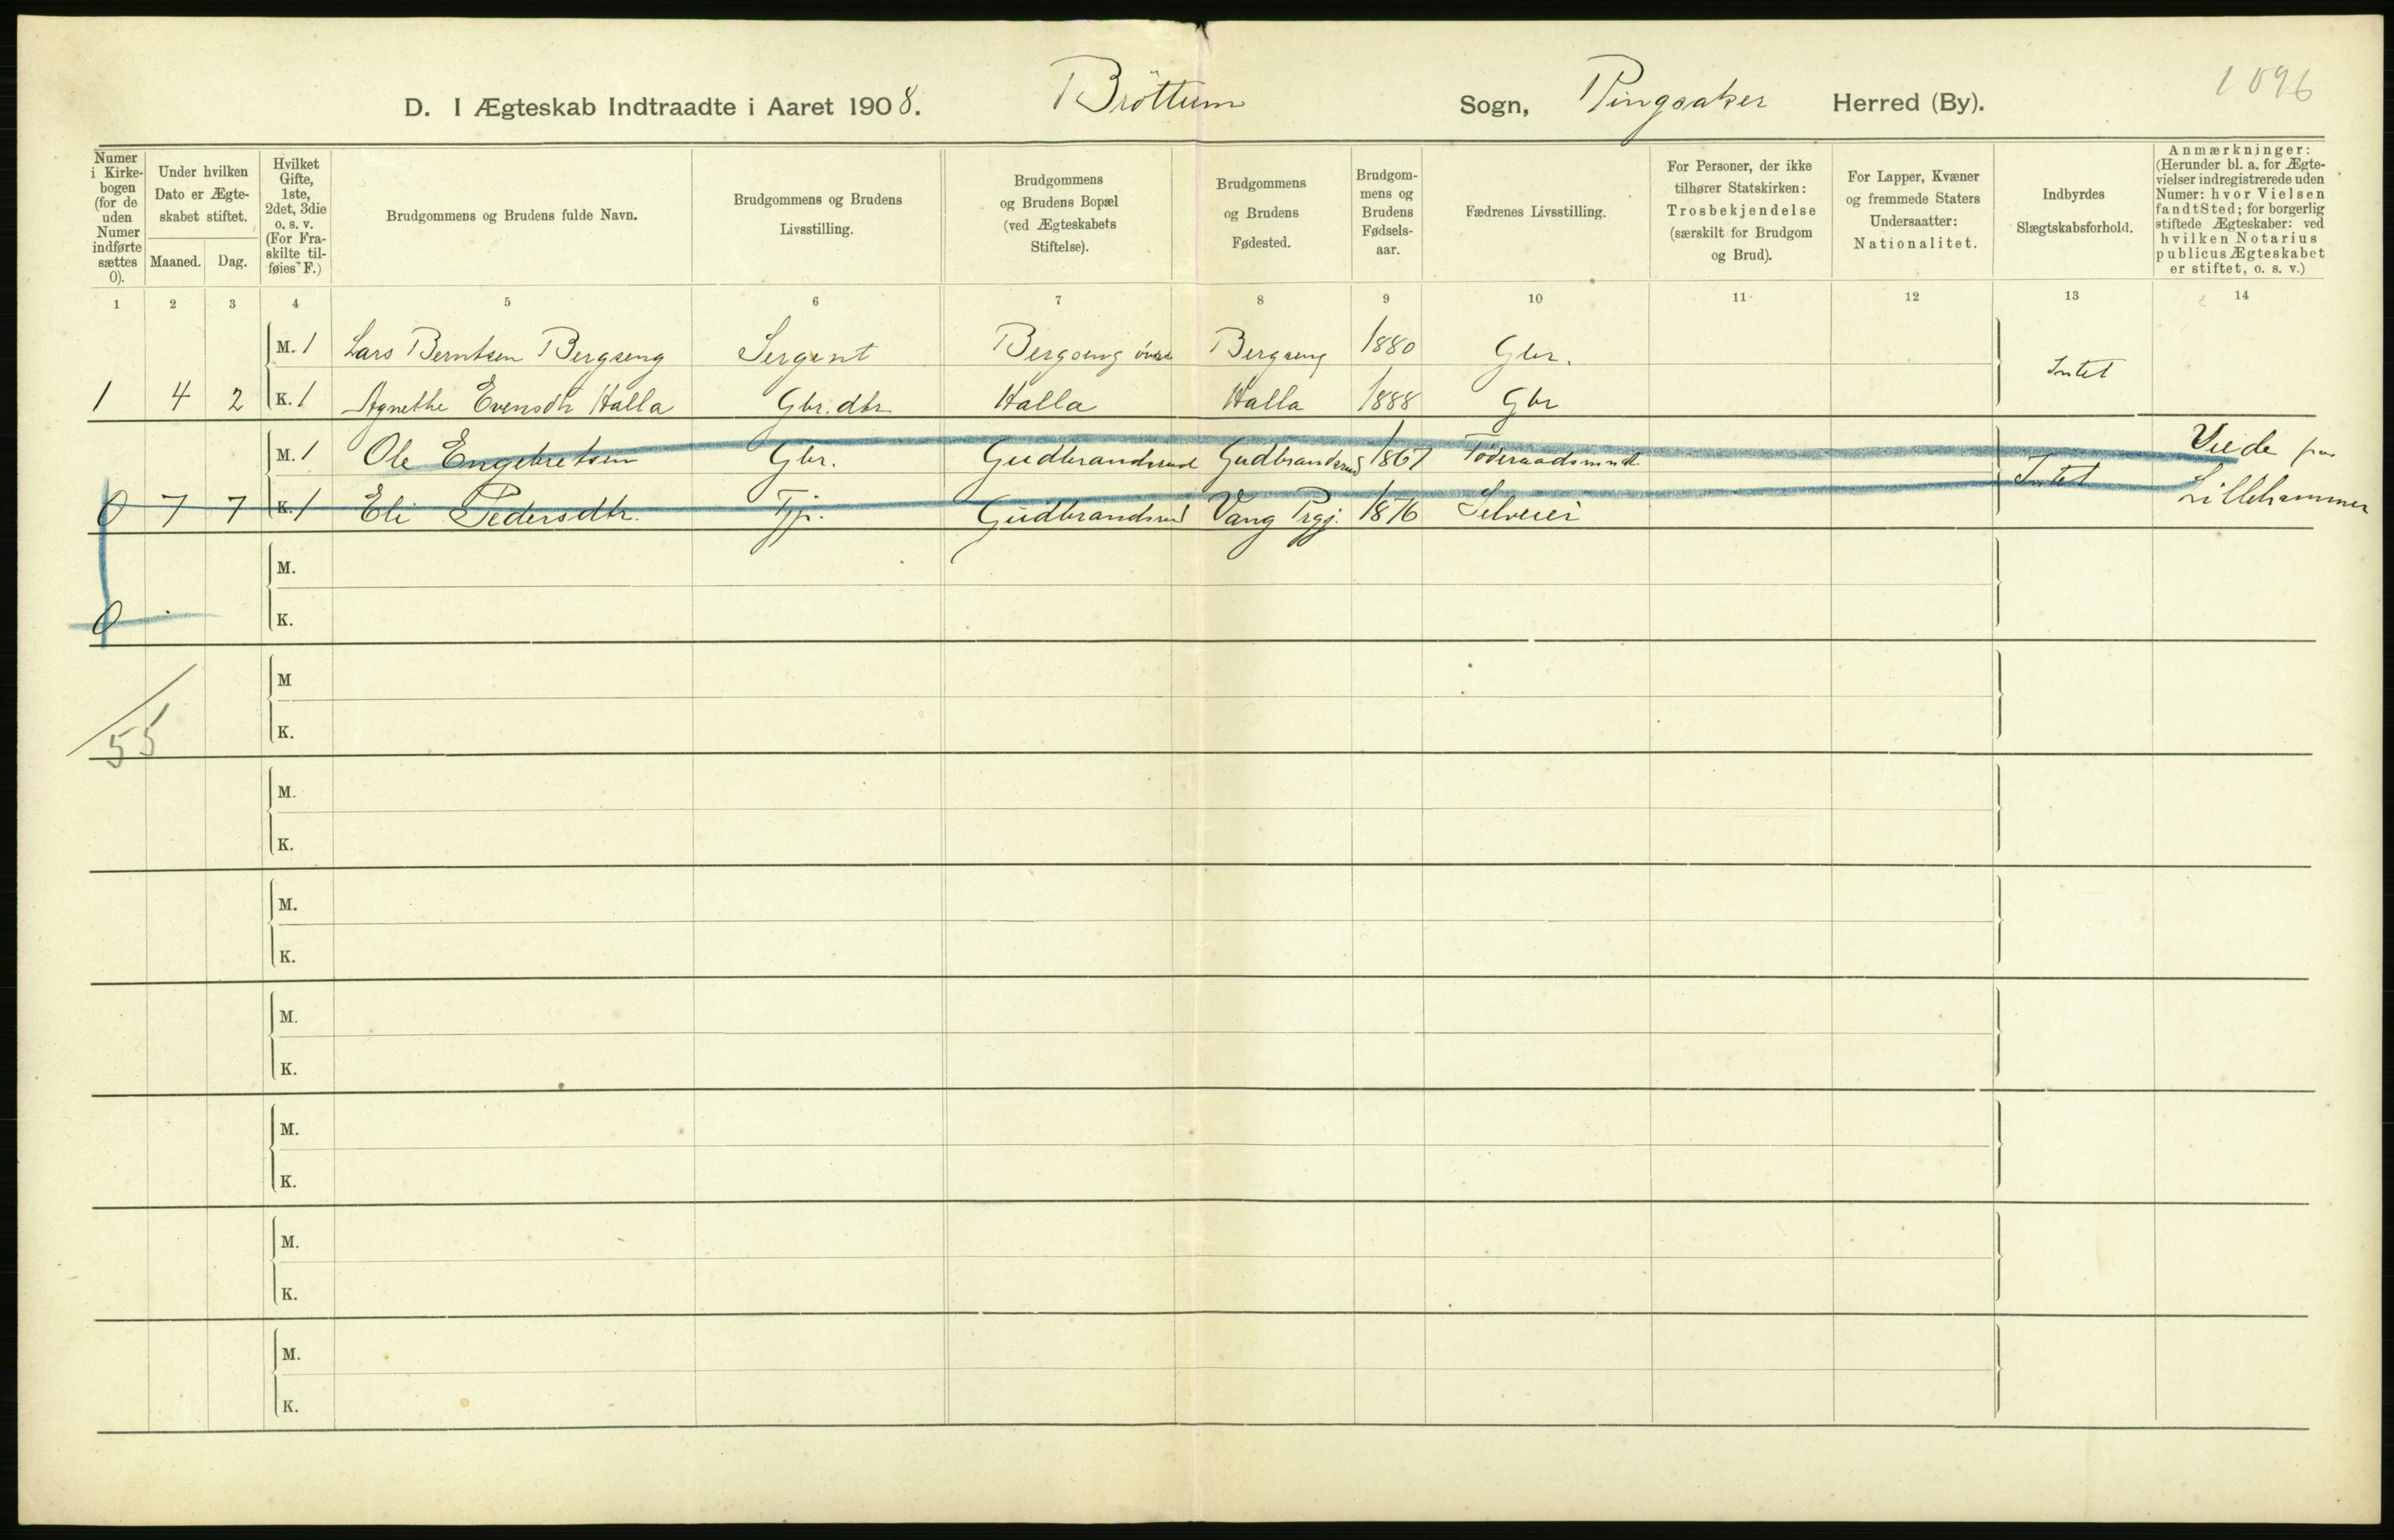 1096
D. I Ægteskab Indtraadte i Aaret 1908. Bröttum Sogn, Ringsaker Herred (By).
Numer i Kirkebogen (for de uden Numer indførte sættes 0).
Under hvilken Dato er Ægteskabet stiftet.
Maaned. Dag.
Hvilket Gifte, 1ste, 2det, 3die o. s. v. (For Fraskilte tilføies F.)
Brudgommens og Brudens fulde Navn.
Brudgommens og Brudens Livsstilling.
Brudgommens og Brudens Bopæl (ved Ægteskabets Stiftelse).
Brudgommens og Brudens Fødested.
Brudgommens og Brudens Fødselsaar.
Fædrenes Livsstilling.
For Personer, der ikke tilhører Statskirken: Trosbekjendelse (særskilt for Brudgom og Brud).
For Lapper, Kvæner og fremmede Staters Undersaatter: Nationalitet.
Indbyrdes Slægtskabsforhold.
Anmærkninger: (Herunder bl. a. for Ægtevielser indregistrerede uden Numer: hvor Vielsen fandt Sted; for borgerlig stiftede Ægteskaber: ved hvilken Notarius publicus Ægteskabet er stiftet, o. s. v.)
1 2 3 4 5 6 7 8 9 10 11 12 13 14
M. 1 Lars Berntsen Bergseng Sergent Bergseng övre Bergseng 1880 Gbr.
Intet
1 4 2 K. 1 Agnethe Evensdtr Halla Gbr. dtr. Halla Halla 1888 Gbr
M. 1 Ole Engebretsen Gbr. Gudbrandsrud Gudbrandsrud 1867 Föderaadsmand Viede paa
Intet
0 7 7 K. 1 Eli Pedersdtr. Tjp. Gudbrandsrud Vang Prgj. 1876 Selveier Lillehammer
M.
0 K.
M
55 K.
M.
K.
M.
K.
M.
K.
M.
K.
M.
K.
M.
K.